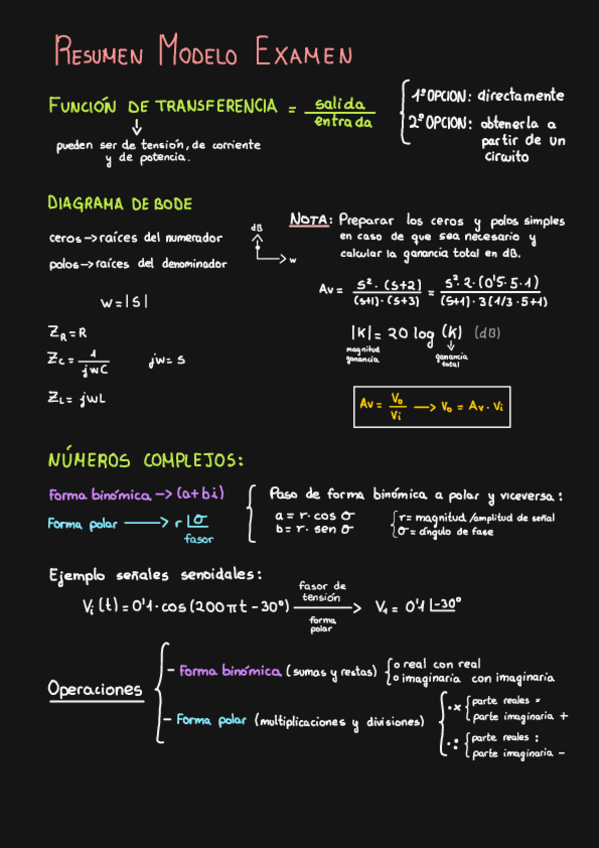 RESUMEN MODELO EXAMEN
FUNCIÓN DE TRANSFERENCIA = salida / entrada
1ª OPCION: directamente
2ª OPCION: obtenerla a
partir de un
circuito
pueden ser de tensión, de corriente
y de potencia.
DIAGRAMA DE BODE
ceros → raíces del numerador
polos → raíces del denominador
dB
w
NOTA: Preparar los ceros y polos simples
en caso de que sea necesario y
calcular la ganancia total en dB.
w = |s|
Av = s²·(s+2) / (s+1)·(s+3) = s²·2·(0'5·s·1) / (s+1)·3(1/3·s+1)
Z_R = R
Z_C = 1 / jwC
jw = s
Z_L = jwL
|K| = 20 log (K) (dB)
magnitud
ganancia
ganancia
total
Av = Vo / Vi → Vo = Av · Vi
NÚMEROS COMPLEJOS:
Forma binómica → (a+bi)
Forma polar → r∠σ
fasor
Paso de forma binómica a polar y viceversa:
a = r · cos σ
b = r · sen σ
r = magnitud/amplitud de señal
σ = ángulo de fase
Ejemplo señales senoidales:
Vi(t) = 0'1 · cos(200πt - 30º)
fasor de
tensión
forma
polar
V₁ = 0'1 ∠-30º
Operaciones
- Forma binómica (sumas y restas)
o real con real
o imaginaria con imaginaria
- Forma polar (multiplicaciones y divisiones)
· × parte reales ×
parte imaginaria +
· : parte reales :
parte imaginaria -